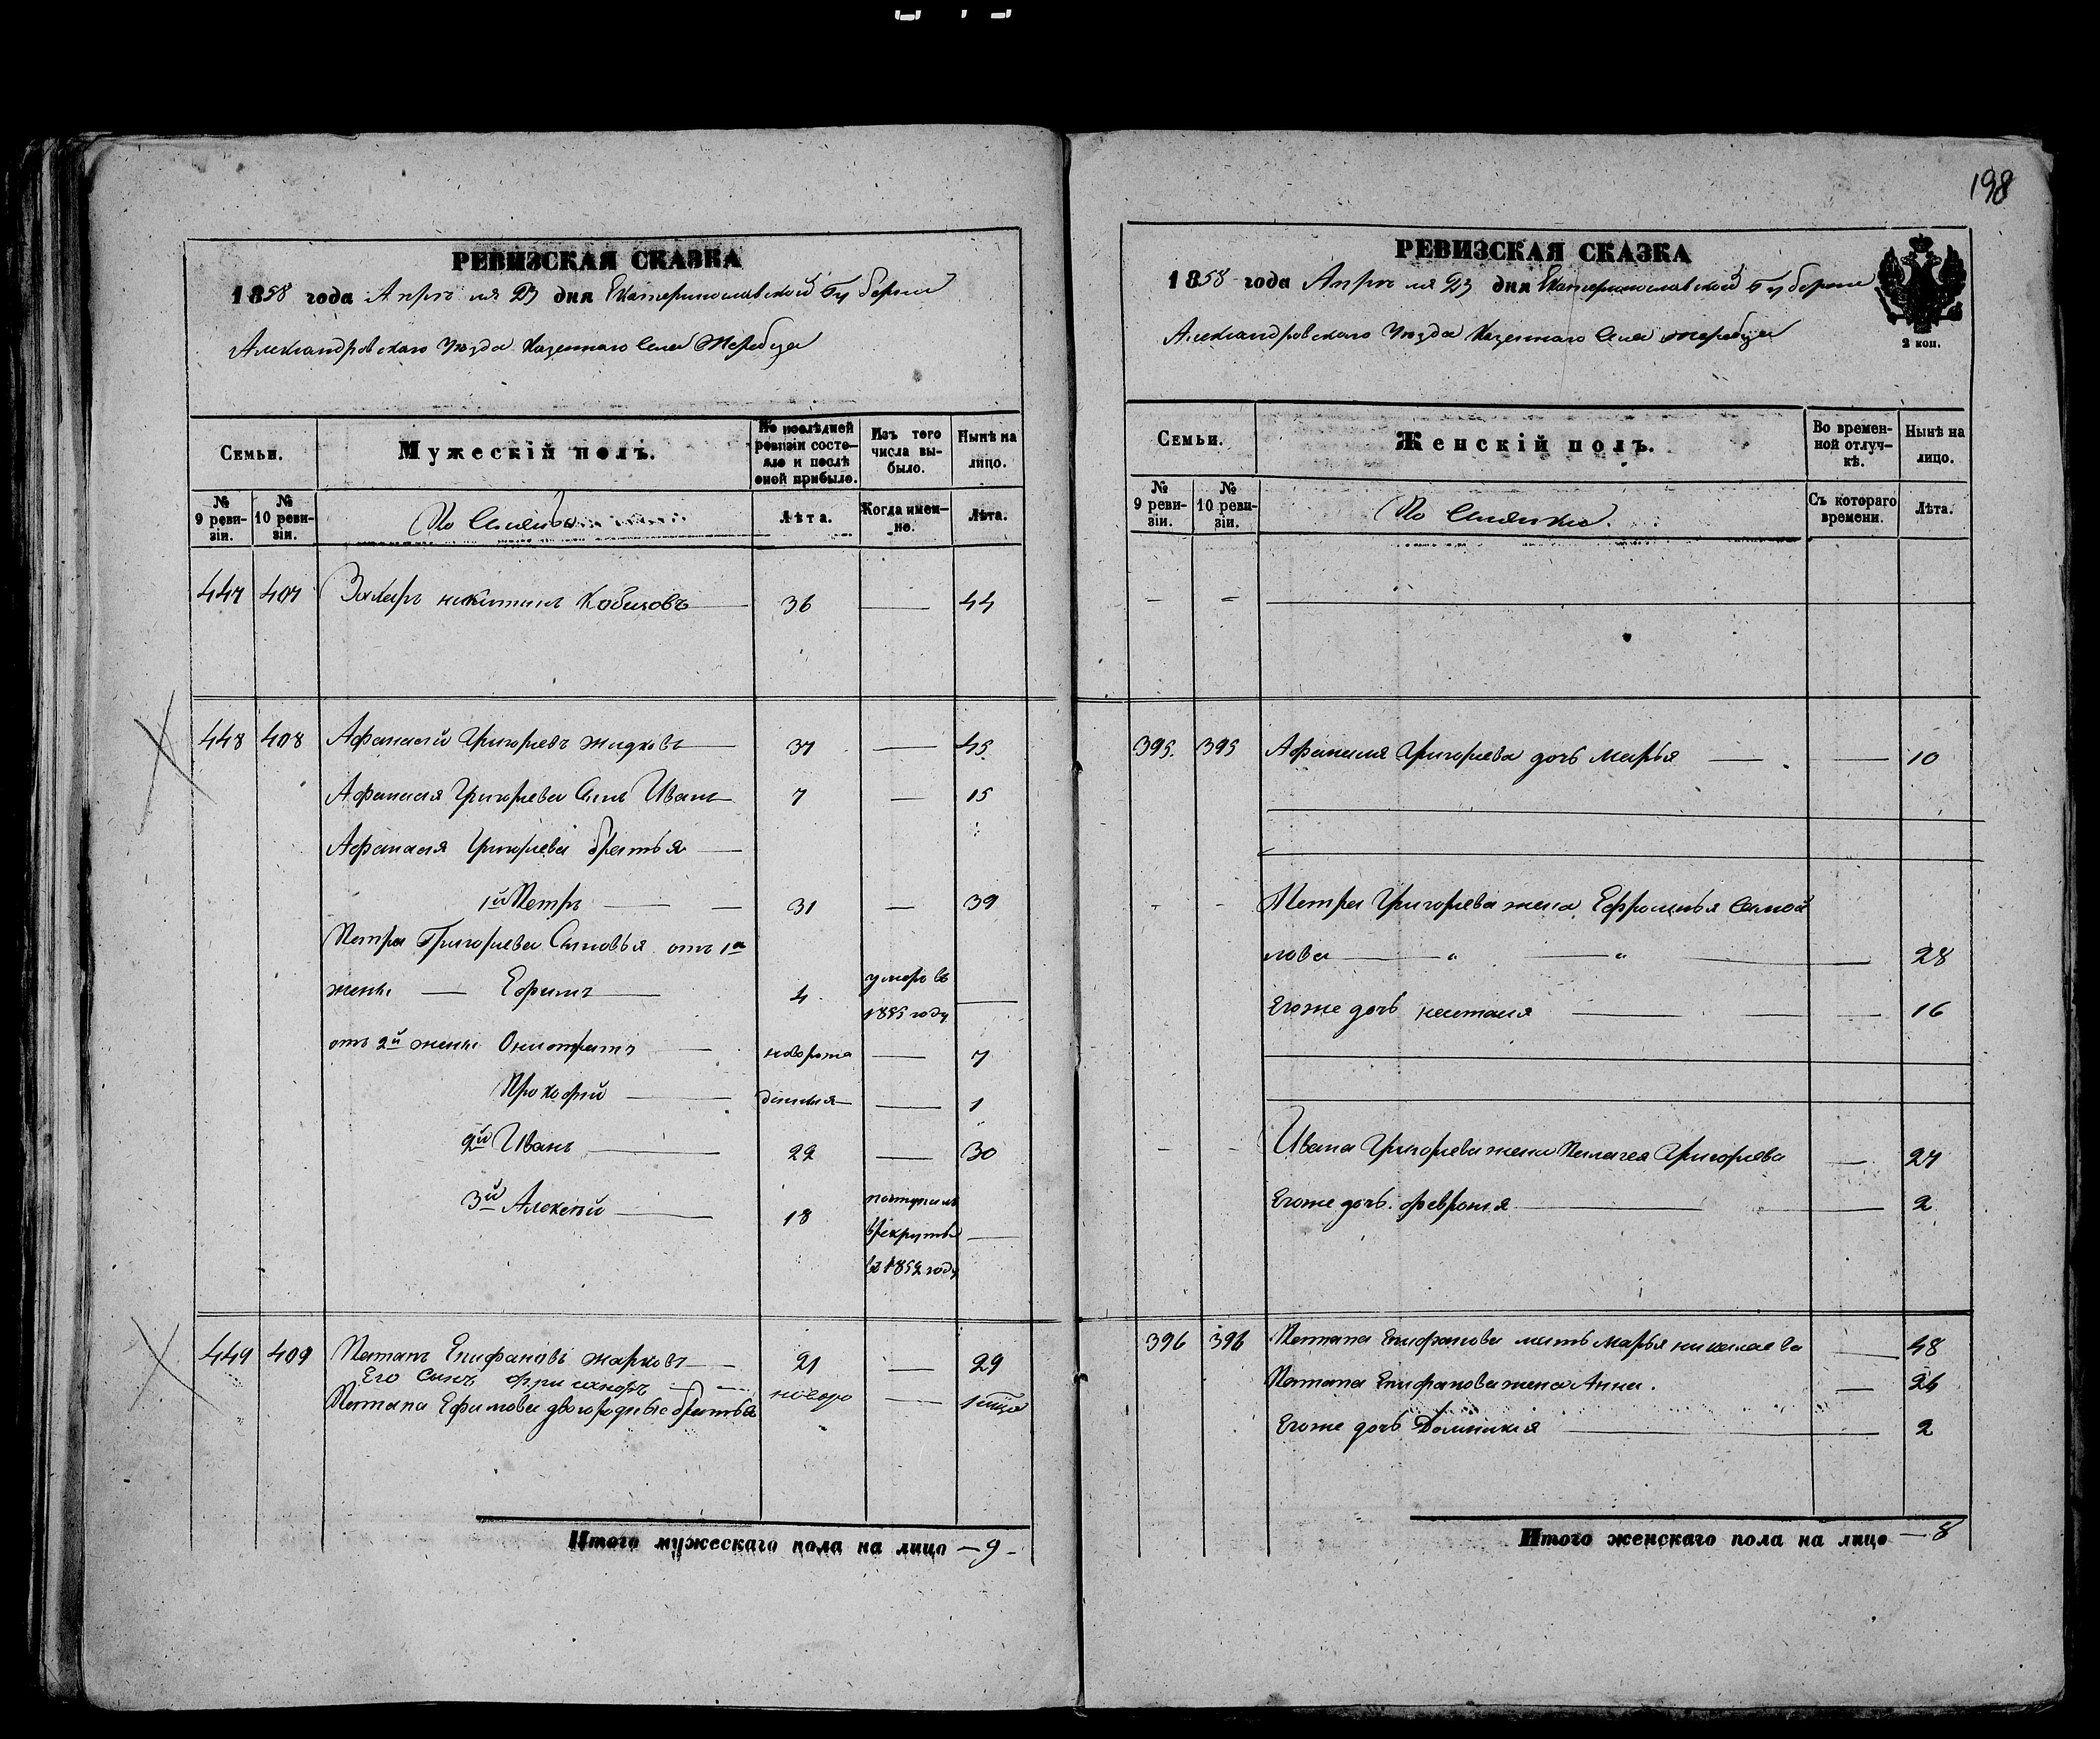 198
РЕВИЗСКАЯ СКАЗКА
1858 года Апреля 23 дня Екатеринославской Губернии
Александровскаго Уезда Казеннаго Села Жеребца
Семьи.
Мужескій полъ.
По послѣдней ревизіи состояло и послѣ оной прибыло.
Изъ того числа выбыло.
Нынѣ на лицо.
№ 9 ревизіи.
№ 10 ревизіи.
Лѣта.
Когда именно.
Лѣта.
447 407 Захаръ Никитинъ 36 — 44
448 408 Афанасій Григорьевъ Жидковъ 37 — 45
Афанасія Григорьева Сынъ Иванъ 7 — 15
Афанасія Григорьева братья
1й Петръ — 31 — 39
Петра Григорьева Сыновья отъ 1й
жены — Ефимъ — 4 умеръ въ 1855 году —
отъ 2й жены — новорож — 7
Прокофий — денныя — 1
2й Иванъ — 22 — 30
3й Алексей — 18 поступилъ в рекруты в 1852 году —
449 409 Потапъ Епифановъ Жарковъ — 21 — 29
Его Сынъ — новоро —
Потапа Ефимова двоюродные братья
Итого мужескаго пола на лицо — 9 —
РЕВИЗСКАЯ СКАЗКА
1858 года Апреля 23 дня Екатеринославской Губернии
Александровскаго Уезда Казеннаго Села Жеребца
2 коп.
Семьи.
Женскій полъ.
Во временной отлучкѣ.
Нынѣ на лицо.
№ 9 ревизіи.
№ 10 ревизіи.
Съ котораго времени.
Лѣта.
395. 395 Афанасія Григорьева дочь Марья — — 10
Петра Григорьева жена Ефросинья Самой
лова — " — " — 28
Егоже дочь — — 16
Ивана Григорьева жена Пелагея Григорьева — 27
Егоже дочь Феврония — — 2
396 396 Потапа Епифанова мать Марья Николаева — 48
Потапа Епифанова жена Анна. — 26
Егоже дочь Домникия — 2
Итого женскаго пола на лицо — 8